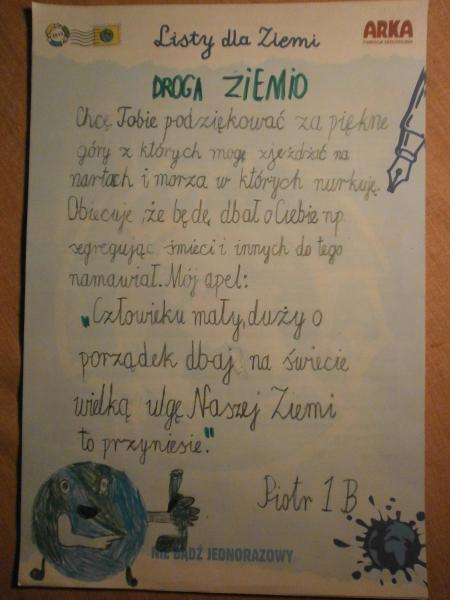 Listy dla Ziemi
ARKA
DROGA ZIEMIO
Chcę Tobie podziękować za piękne
góry z których mogę zjeżdżać na
nartach i morza w których nurkuję.
Obiecuje, że będę dbał o Ciebie np.
segregując śmieci i innych do tego
namawiał. Mój apel:
"Człowieku mały, duży o
porządek dbaj, na świecie
wielką ulgę Naszej Ziemi
to przyniesie."
Piotr 1 B
NIE BĄDŹ JEDNORAZOWY